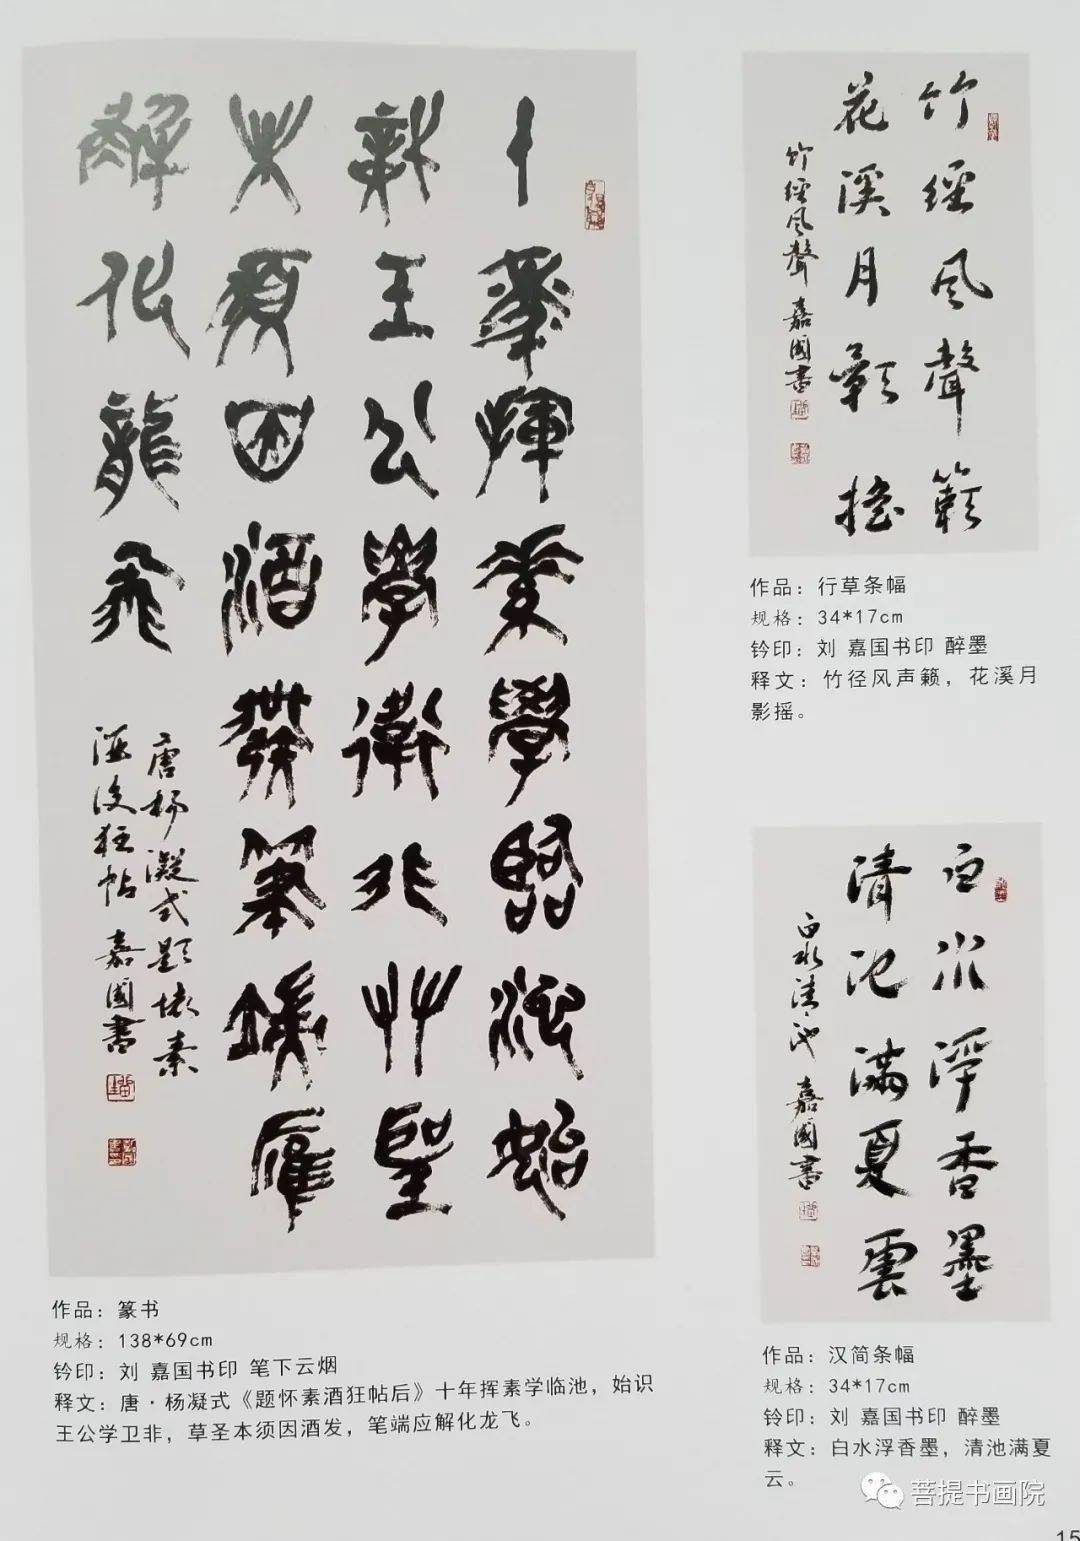 十年挥素学临池始
识王公学卫非草圣
本须因酒发笔端应
解化龙飞
唐杨凝式题怀素
酒后狂帖 嘉国书
作品：篆书
规格：138*69cm
钤印：刘 嘉国书印 笔下云烟
释文：唐·杨凝式《题怀素酒狂帖后》十年挥素学临池，始识
王公学卫非，草圣本须因酒发，笔端应解化龙飞。
竹径风聲籁
花溪月影摇
竹径风聲 嘉國書
作品：行草条幅
规格：34*17cm
钤印：刘 嘉国书印 醉墨
释文：竹径风声籁，花溪月
影摇。
白水浮香墨
清池满夏雲
白水清池 嘉國書
作品：汉简条幅
规格：34*17cm
铃印：刘 嘉国书印 醉墨
释文：白水浮香墨，清池满夏
云。
菩提书画院
15